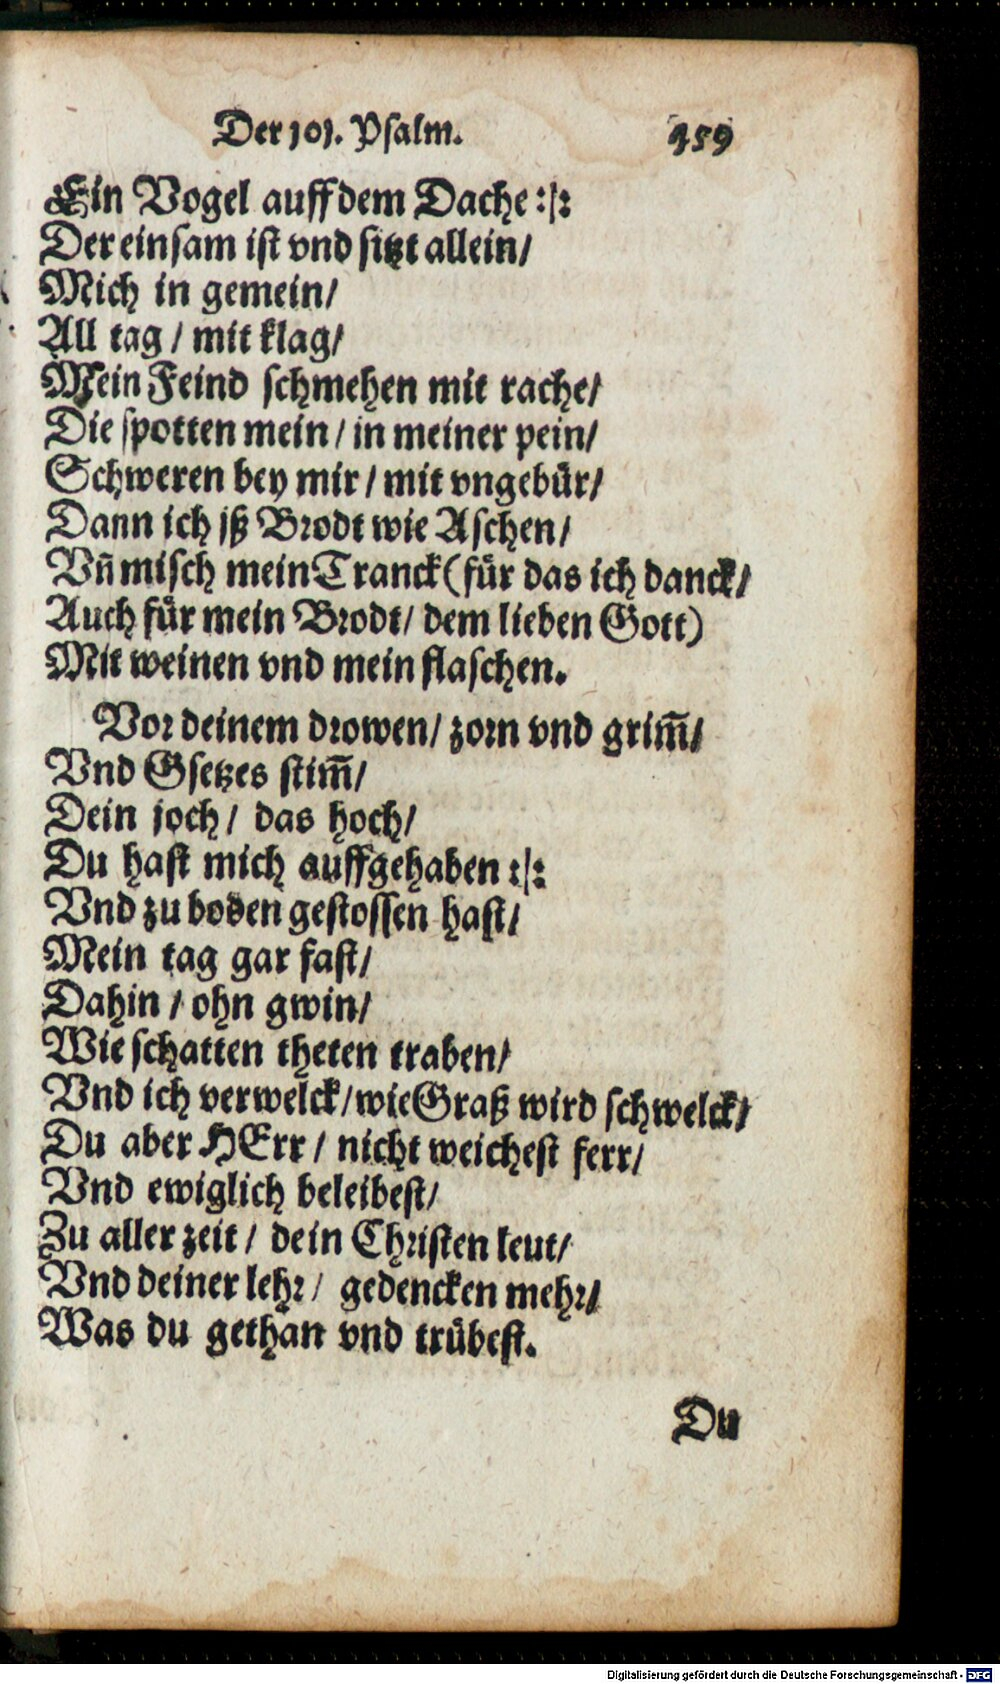 Der 101. Psalm. 459
Ein Vogel auff dem Dache :/:
Der einsam ist vnd sitzt allein/
Mich in gemein/
All tag / mit klag/
Mein Feind schmehen mit rache/
Die spotten mein / in meiner pein/
Schweren bey mir / mit vngebür/
Dann ich jß Brodt wie Aschen/
Vñ misch mein Tranck (für das ich danck/
Auch für mein Brodt / dem lieben Gott)
Mit weinen vnd mein flaschen.
Vor deinem drowen / zorn vnd grim̃/
Vnd Gsetzes stim̃/
Dein joch / das hoch/
Du hast mich auffgehaben :/:
Vnd zu boden gestossen hast/
Mein tag gar fast/
Dahin / ohn gwin/
Wie schatten theten traben/
Vnd ich verwelck / wie Graß wird schwelck/
Du aber HErr / nicht weichest ferr/
Vnd ewiglich beleibest/
Zu aller zeit / dein Christen leut/
Vnd deiner lehr / gedencken mehr/
Was du gethan vnd trübest.
Du
Digitalisierung gefördert durch die Deutsche Forschungsgemeinschaft - DFG